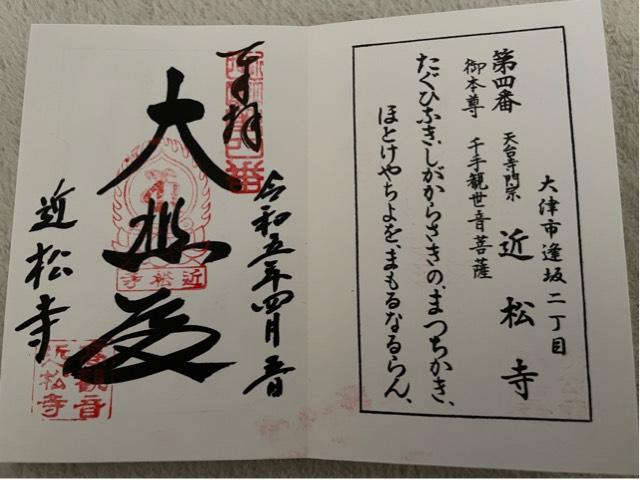 大津市逢坂二丁目
第四番 天台寺門宗 近松寺
御本尊 千手観世音菩薩
たぐひふき、しがからさきの、まつちかき、
ほとけやちよを、まもるなるらん、
奉拝
令和五年四月
大悲
近松寺
近松寺
高観音
近松寺